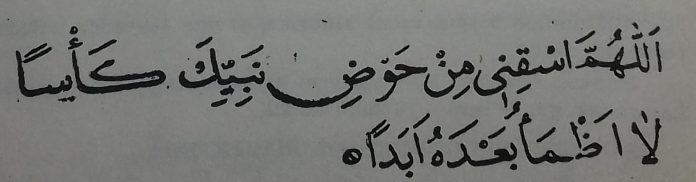 اَللّٰهُمَّ اسْقِنِى مِنْ حَوْضِ نَبِيِّكَ كَأْسًا
لَا اَظْمَأُ بَعْدَهُ اَبَدًا ه